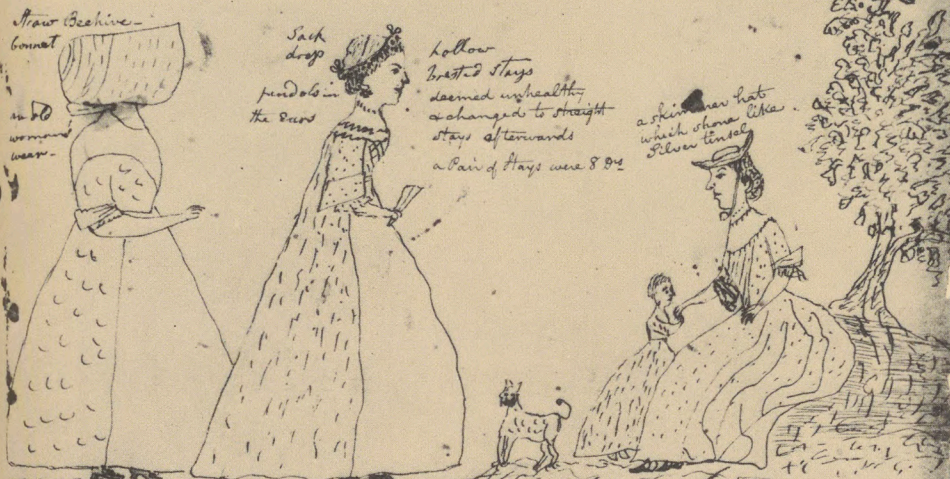 Straw Beehive -
bonnet
an old
womens'
wear -
Sack
dress
pendols in
the Ears
hollow
brested Stays
deemed unhealthy
& changed to straight
stays afterwards
a Pair of Stays were 8 Drs
a skimmer hat
which shone like
Silver tinsel